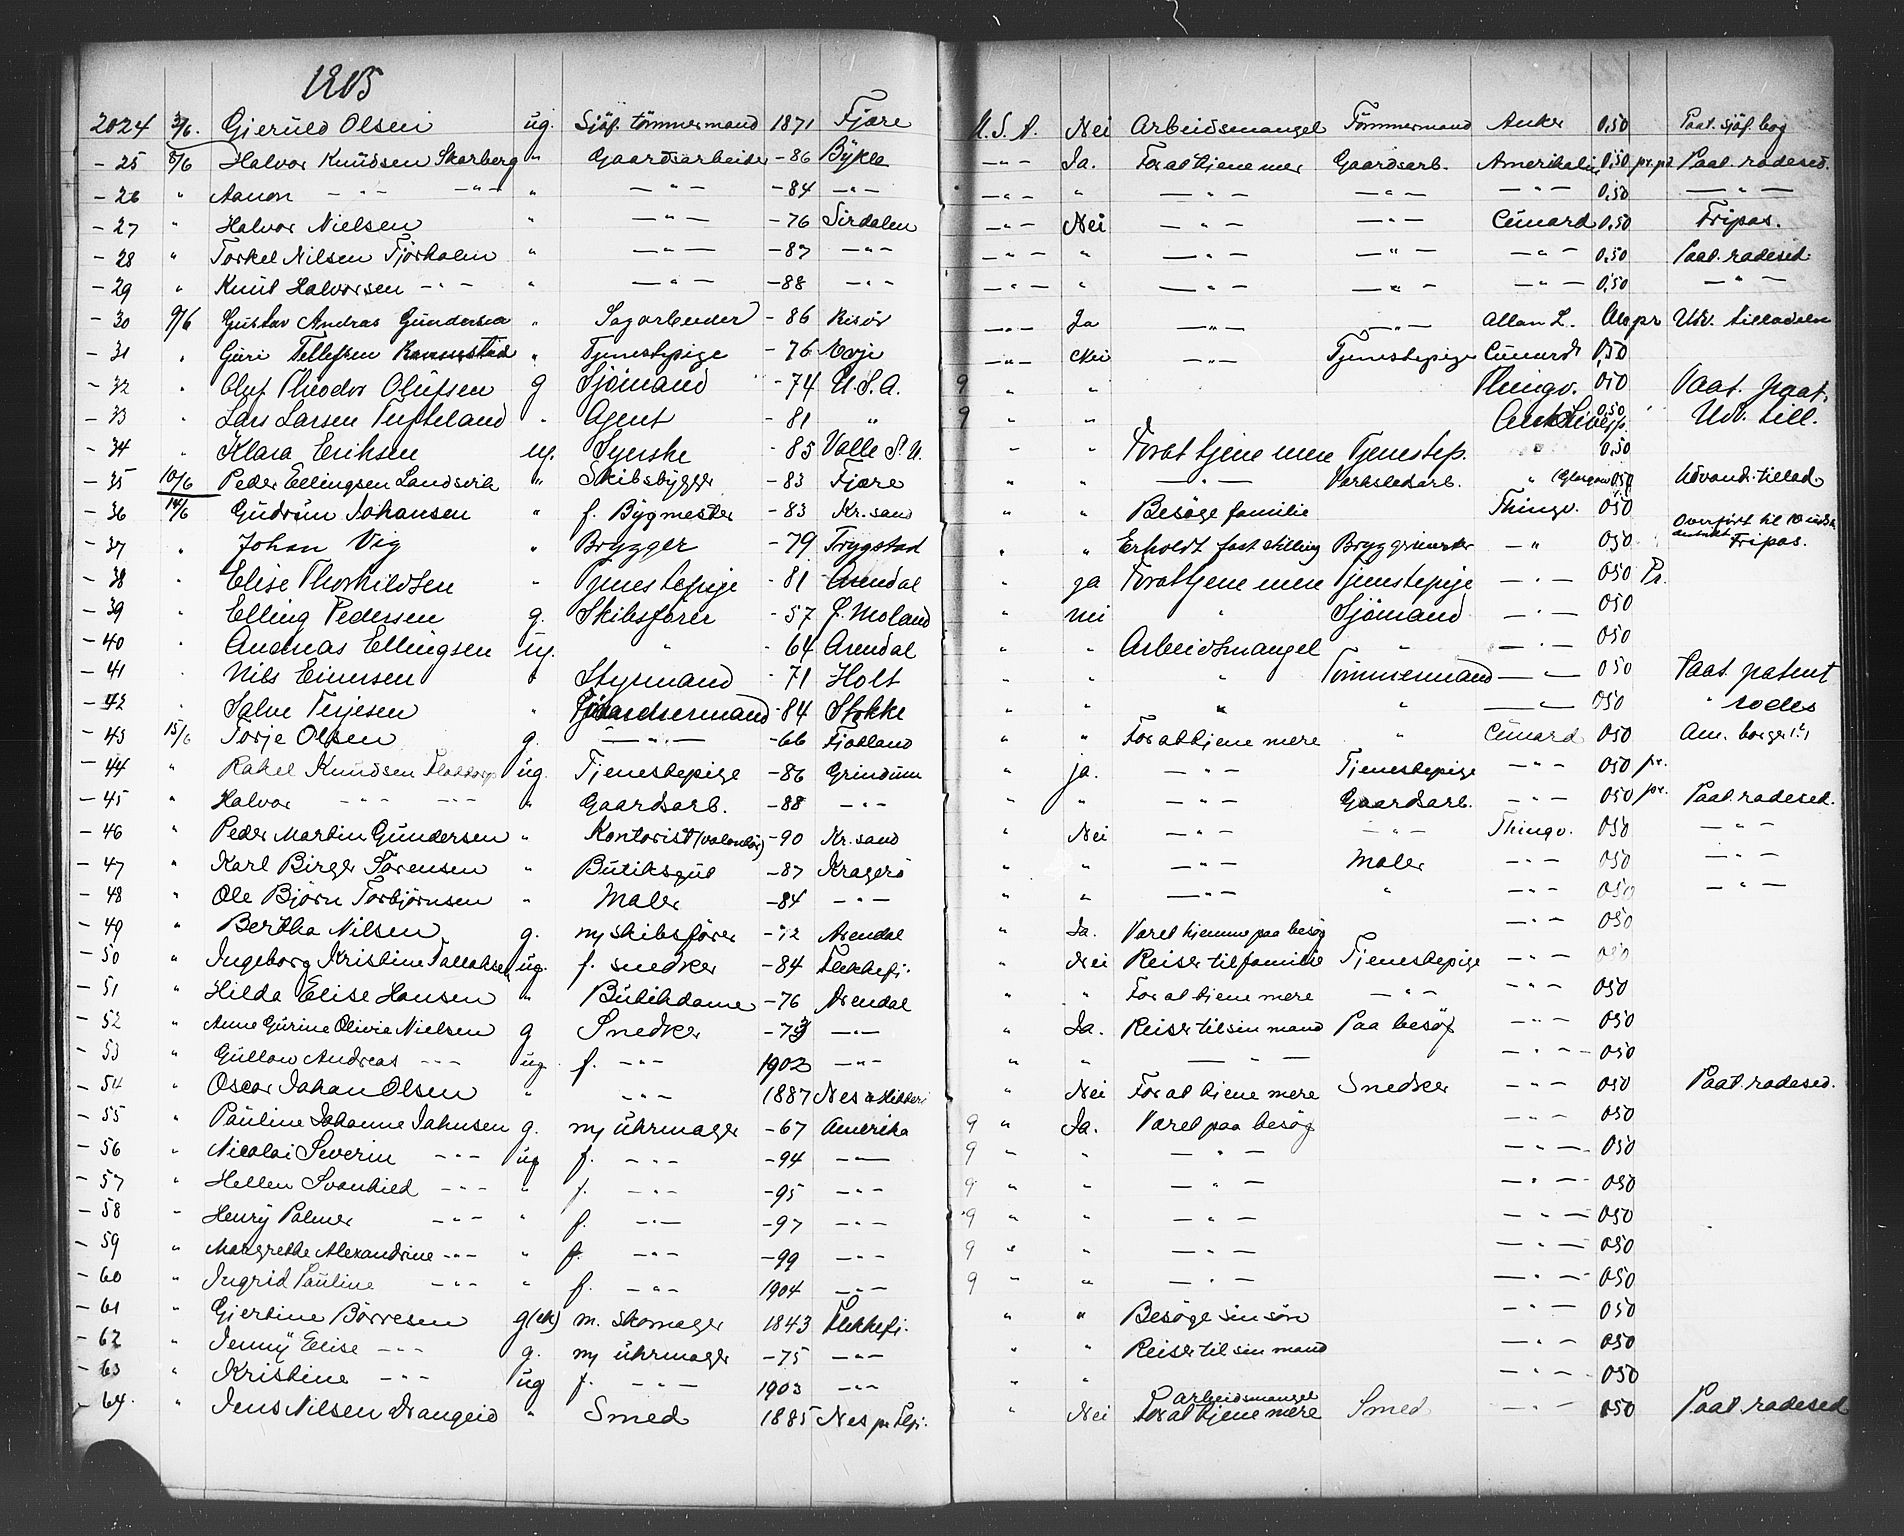 1905
2024 3/6. Gjeruld Olsen ug. Sjøf. tømmermand 1871 Fjære U.S.A. Nei Arbeidsmangel Tømmermand Anker 0,50 Paat. sjøf. bog
- 25 5/6 Halvor Knudsen Skarberg " Gaardsarbeider - 86 Bykle - " - Ja. For at tjene mer Gaardsarb. Amerikalin 0,50 pr.pd Paat. rodesed.
- 26 " Aanon - " - - " - " - " - - 84 - " - - " - " - " - - " - - " - 0,50 - " -
- 27 " Halvor Nielsen " - " - - 76 Sirdalen - " - Nei - " - - " - Cunard 0,50 Fripas.
- 28 " Torkel Nilsen Tjørholm " - " - - 87 - " - - " - " - " - - " - - " - 0,50 Paat. rodesed.
- 29 " Knut Halvorsen - " - " - " - - 88 - " - - " - " - " - - " - - " - 0,50 - " -
- 30 9/6 Gustav Andras Gundersen " Sagarbeider - 86 Risør - " - Ja - " - - " - Allan L. pr Udv. tilladelse
- 31 " Guri Tellefsen " Tjenestepige - 76 Evje - " - Nei - " - Tjenestepige Cunard 0,50
- 32 " Oluf Theodor Olufsen g Sjømand - 74 U.S.A. 9 " " Thingv. 050 Paat. paat.
- 33 " Lars Larsen Tufteland " Agent - 81 " 9 " " 0,50 Udv. till.
- 34 " Klara Eriksen ug. Syerske - 85 Valle S.U. " " For at tjene mere Tjenestep. " 0,50
- 35 10/6 Peder Ellingsen Landsvik " Skibsbygger - 83 Fjære " " - " - Værkstedarb. " (Glasgow) 050 Udvand. tillad.
- 36 14/6 Gudrun Johansen " f. Bygmester - 83 Kr.sand " " Besøge familie Thingv. 050
- 37 " Johan Vig " Brygger - 79 Trygstad " " Erholdt fast stilling Bryggmester - " - 050 Overført til Fripas.
- 38 " Elise Thorkildsen " Tjenestepige - 81 Arendal " ja For at tjene mere Tjenestepige - " - 050 Pr.
- 39 " Elling Pedersen g. Skibsfører - 57 Ø. Moland " nei " Sjømand - " - 050
- 40 " Andreas Ellingsen ug. " - 64 Arendal " " Arbeidsmangel " - " - 050
- 41 " Nils Einersen " Styrmand - 71 Holt " " " Tømmermand - " - 050 Paat. patent
- 42 " Salve Terjesen " - 84 Stokke " " " " - " - 050 " rodes
- 43 15/6 Torje Olsen g. - " - - 66 Fjotland " " For at tjene mere " Cunard 050 Am. borger
- 44 " Rakel Knudsen ug. Tjenestepige - 86 Grindum " ja. - " - Tjenestepige - " - 050 pr.
- 45 " Halvor - " - - " - " Gaardsarb. - 88 - " - " " - " - Gaardsarb. - " - 050 pr. Paat. rodesed.
- 46 " Peder Martin Gundersen " Kontorist (volontør) - 90 Kr. sand " Nei - " - - " - Thingv. 050 - " -
- 47 " Karl Birger Sørensen " Butiksgut - 87 Kragerø " " - " - Maler - " - 050 - " -
- 48 " Ole Bjørn Torbjørnsen " Maler - 84 - " - " " - " - " - " - 050 - " -
- 49 " Bertha Nilsen g. m/ skibsfører - 72 Arendal " Ja. Været hjemme paa besøg - " - 050
- 50 " Ingeborg Kristine ug. f. snedker - 84 Flekkefj. " Nei Reiser til familie Tjenestepige - " - 050
- 51 " Hilda Elise Hansen " Butikdame - 76 Arendal " " For at tjene mere - " - - " - 050
- 52 " Anne Gurine Olivie Nielsen g Snedker - 73 - " - " Ja. Reiser til sin mand Paa besøg - " - 050
- 53 " Gullow Andreas - " - ug. f. - " - 1903 - " - " " - " - - " - 050
- 54 " Oscar Johan Olsen " - " - 1887 Nes " Nei For at tjene mere Snedker - " - 050 Paat. rodesed.
- 55 " Pauline Johanne Jahnsen g. m/ uhrmager - 67 Amerika 9 " Ja. Været paa besøg - " - 050
- 56 " Nicolai Severin - " - ug f. - " - - 94 - " - 9 " " - " - - " - 050
- 57 " Hellen Svanhild - " - " f. - " - - 95 - " - 9 " " - " - - " - 050
- 58 " Henry Palmer - " - " f. - " - - 97 - " - 9 " " - " - - " - 050
- 59 " Margrethe Alexandrine - " - " f. - " - - 99 - " - 9 " " - " - - " - 050
- 60 " Ingrid Pauline - " - " f. - " - 1904 - " - 9 " " - " - - " - 050
- 61 " Gjertine Børresen g(ek) m. skomager 1843 Flekkefj. " " Besøge sin søn - " - 050
- 62 " Jenny Elise - " - g. m/ uhrmager - 75 - " - " " Reiser til sin mand - " - 050
- 63 " Kristine - " - ug f. - " - 1903 - " - " " - " - 050
- 64. " Jens Nilsen Drangeid " Smed 1885 Nes pr Flfj. " Nei Arbeidsmangel For at tjene mere Smed - " - 050 Paat. rodesed